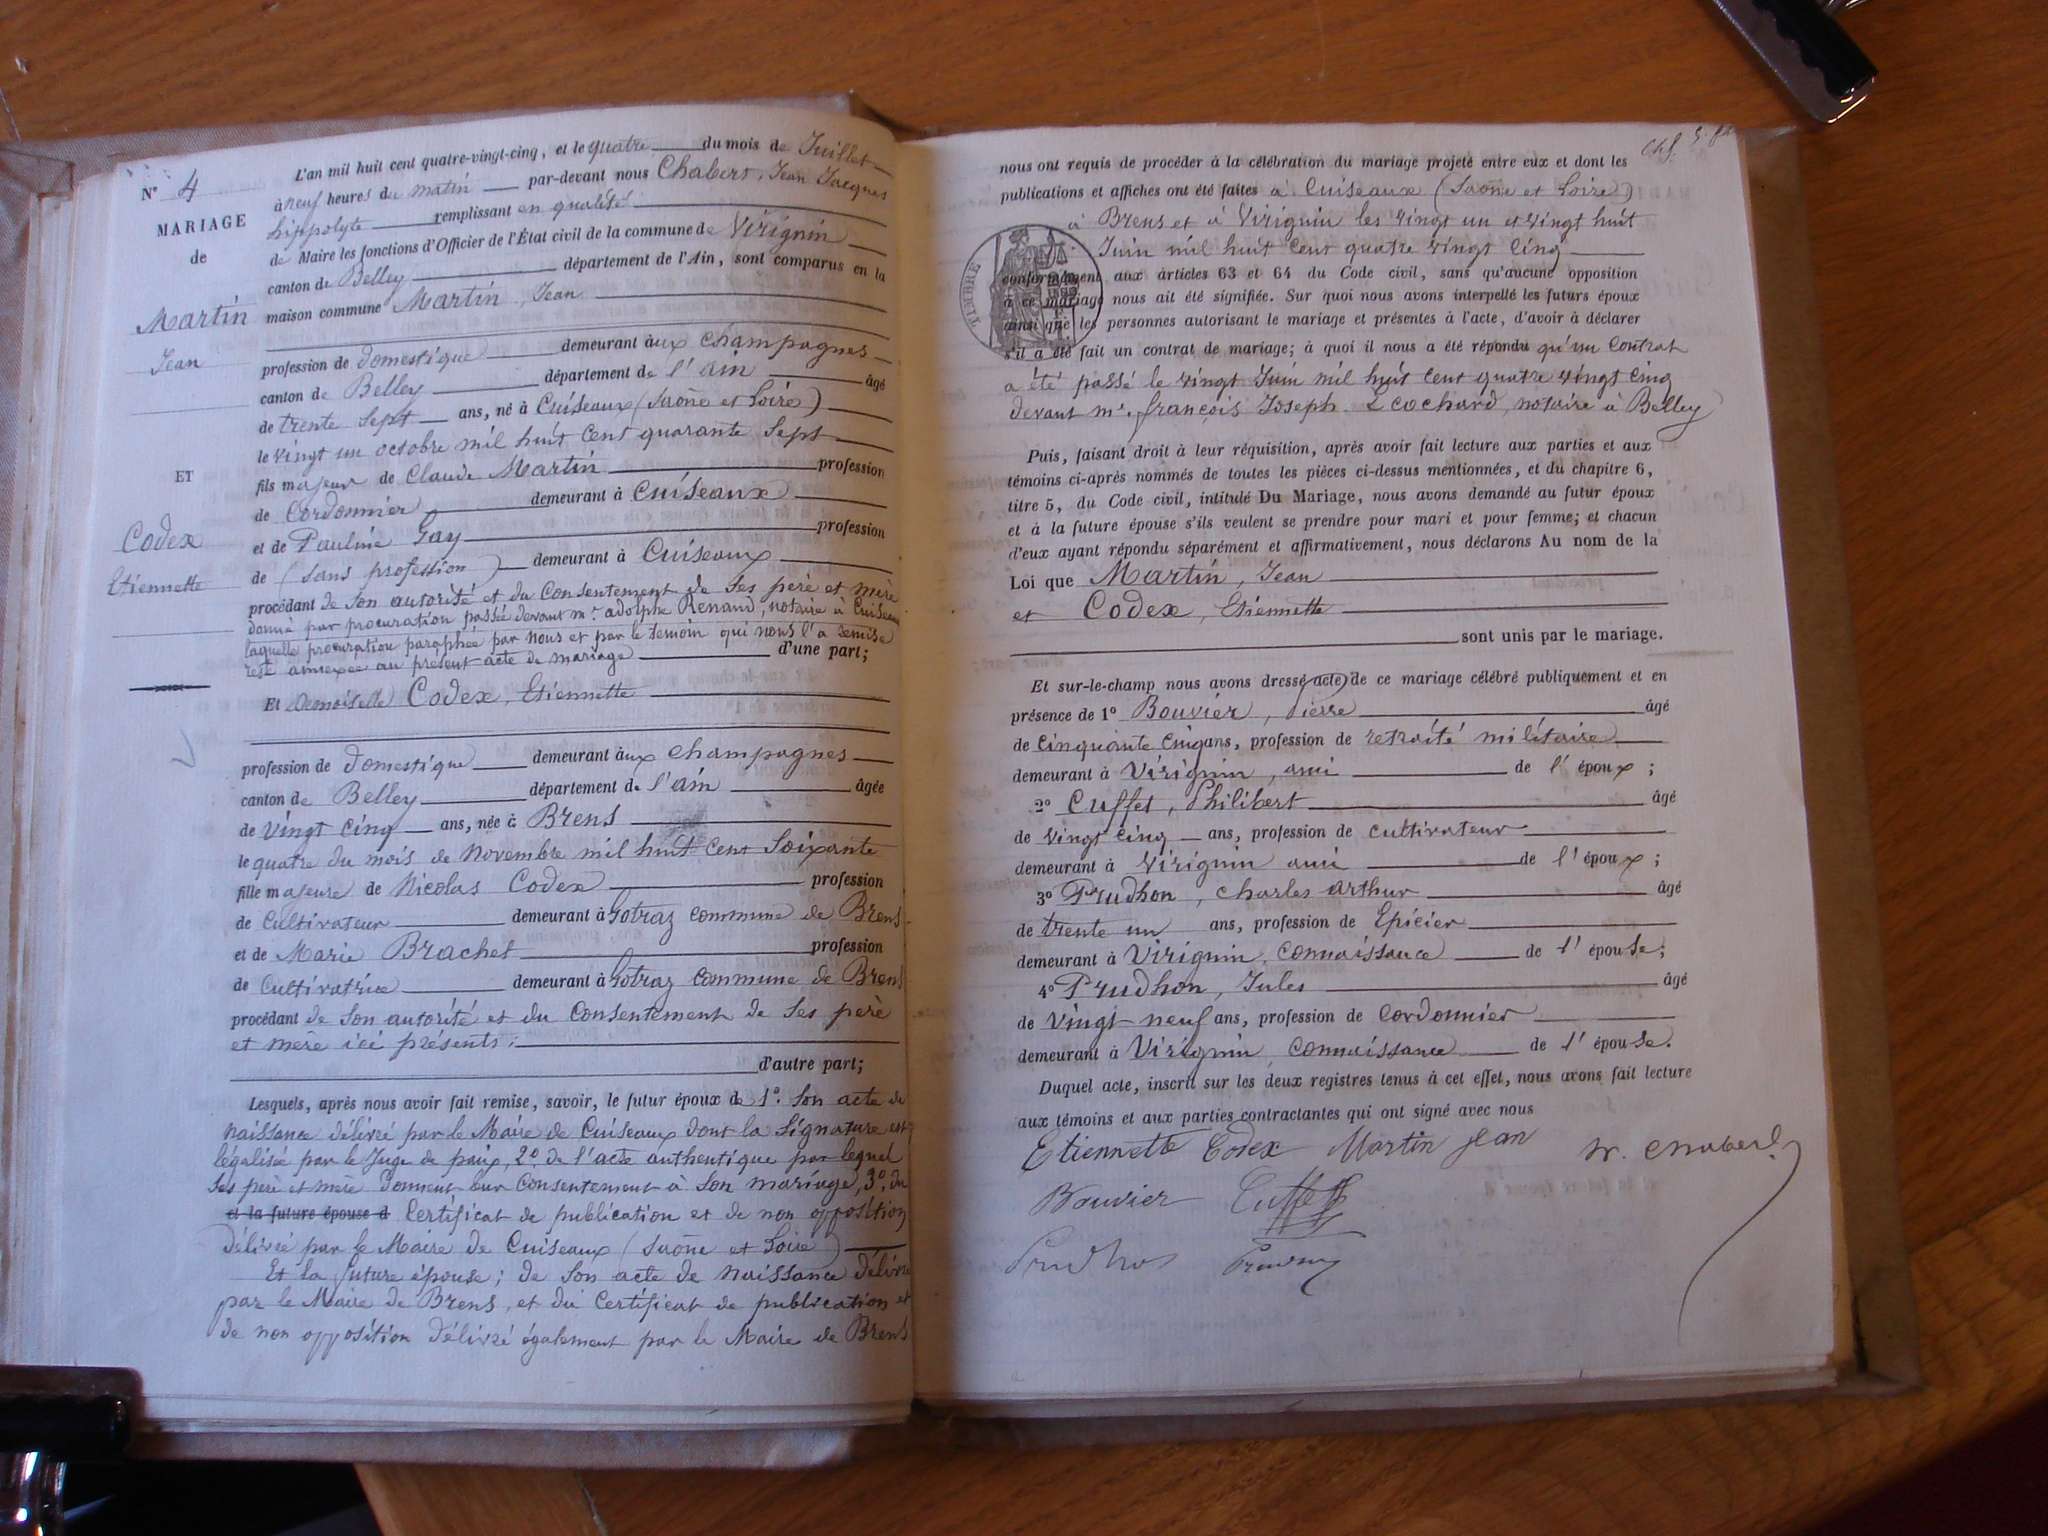 N° 4
MARIAGE
de
Martin
Jean
ET
Codex
Etiennette
L'an mil huit cent quatre-vingt-cinq, et le quatre du mois de Juillet
à neuf heures du matin par-devant nous Chabert, Jean Jacques
hippolyte remplissant en qualité
de Maire les fonctions d'Officier de l'État civil de la commune de Virignin
canton de Belley département de l'Ain, sont comparus en la
maison commune Martin, Jean
profession de domestique demeurant aux champagnes
canton de Belley département de l'ain âgé
de trente sept ans, né à Cuiseaux (Saône et Loire)
le vingt un octobre mil huit cent quarante sept
fils majeur de Claude Martin profession
de Cordonnier demeurant à Cuiseaux
et de Pauline Gay profession
de (sans profession) demeurant à Cuiseaux
procédant de son autorité et du consentement de ses perè et mère
donné par procuration passée devant mr. adolphe Renaud, notaire à Cuiseau
laquelle procuration paraphée par nous et par le temoin qui nous l'a remise
reste annexée au présent acte de mariage d'une part;
Et Demoiselle Codex, Etiennette
profession de domestique demeurant aux champagnes
canton de Belley département de l'ain âgée
de vingt cinq ans, née à Brens
le quatre du mois de Novembre mil huit cent Soixante
fille majeure de Nicolas Codex profession
de Cultivateur demeurant à Gotraz commune de Brens
et de Marie Brachet profession
de Cultivatrice demeurant à Gotraz commune de Brens
procédant de son autorité et du consentement de ses perè
et mère ici présents;
d'autre part;
Lesquels, après nous avoir fait remise, savoir, le futur époux de 1°. Son acte de
naissance délivré par le Maire de Cuiseaux dont la signature est
légalisée par le Juge de paix, 2°. de l'acte authentique par lequel
ses perè et mère donnent leur consentement à son mariage, 3°. du
et la future épouse d Certificat de publication et de non opposition
délivré par le Maire de Cuiseaux (Saône et Loire)
Et la future épouse; de son acte de naissance délivré
par le Maire de Brens, et du Certificat de publication et
de non opposition délivré également par le Maire de Brens
nous ont requis de procéder à la célébration du mariage projeté entre eux et dont les
publications et affiches ont été faites à Cuiseaux (Saône et Loire)
à Brens et à Virignin les vingt un et vingt huit
Juin mil huit cent quatre vingt cinq
TIMBRE
conformément aux articles 63 et 64 du Code civil, sans qu'aucune opposition
à ce mariage nous ait été signifiée. Sur quoi nous avons interpellé les futurs époux
ainsi que les personnes autorisant le mariage et présentes à l'acte, d'avoir à déclarer
s'il a été fait un contrat de mariage; à quoi il nous a été répondu qu'un contrat
a été passé le vingt Juin mil huit cent quatre vingt cinq
devant mr. françois Joseph Lcochard, notaire à Belley
Puis, faisant droit à leur réquisition, après avoir fait lecture aux parties et aux
témoins ci-après nommés de toutes les pièces ci-dessus mentionnées, et du chapitre 6,
titre 5, du Code civil, intitulé Du Mariage, nous avons demandé au futur époux
et à la future épouse s'ils veulent se prendre pour mari et pour femme; et chacun
d'eux ayant répondu séparément et affirmativement, nous déclarons Au nom de la
Loi que Martin, Jean
et Codex, Etiennette
sont unis par le mariage.
Et sur-le-champ nous avons dressé acte de ce mariage célébré publiquement et en
présence de 1° Bouvier, Pierre âgé
de cinquante cinq ans, profession de retraité militaire
demeurant à Virignin, ami de l'époux;
2° Cuffet, Philibert âgé
de vingt cinq ans, profession de cultivateur
demeurant à Virignin ami de l'époux;
3° Prudhon, Charles arthur âgé
de trente un ans, profession de Epicier
demeurant à Virignin, connaissance de l'épouse;
4° Prudhon, Jules âgé
de vingt neuf ans, profession de cordonnier
demeurant à Virignin, connaissance de l'épouse.
Duquel acte, inscrit sur les deux registres tenus à cet effet, nous avons fait lecture
aux témoins et aux parties contractantes qui ont signé avec nous
Etiennette Codex Martin jean hr. Chabert
Bouvier Cuffet
Prudhon